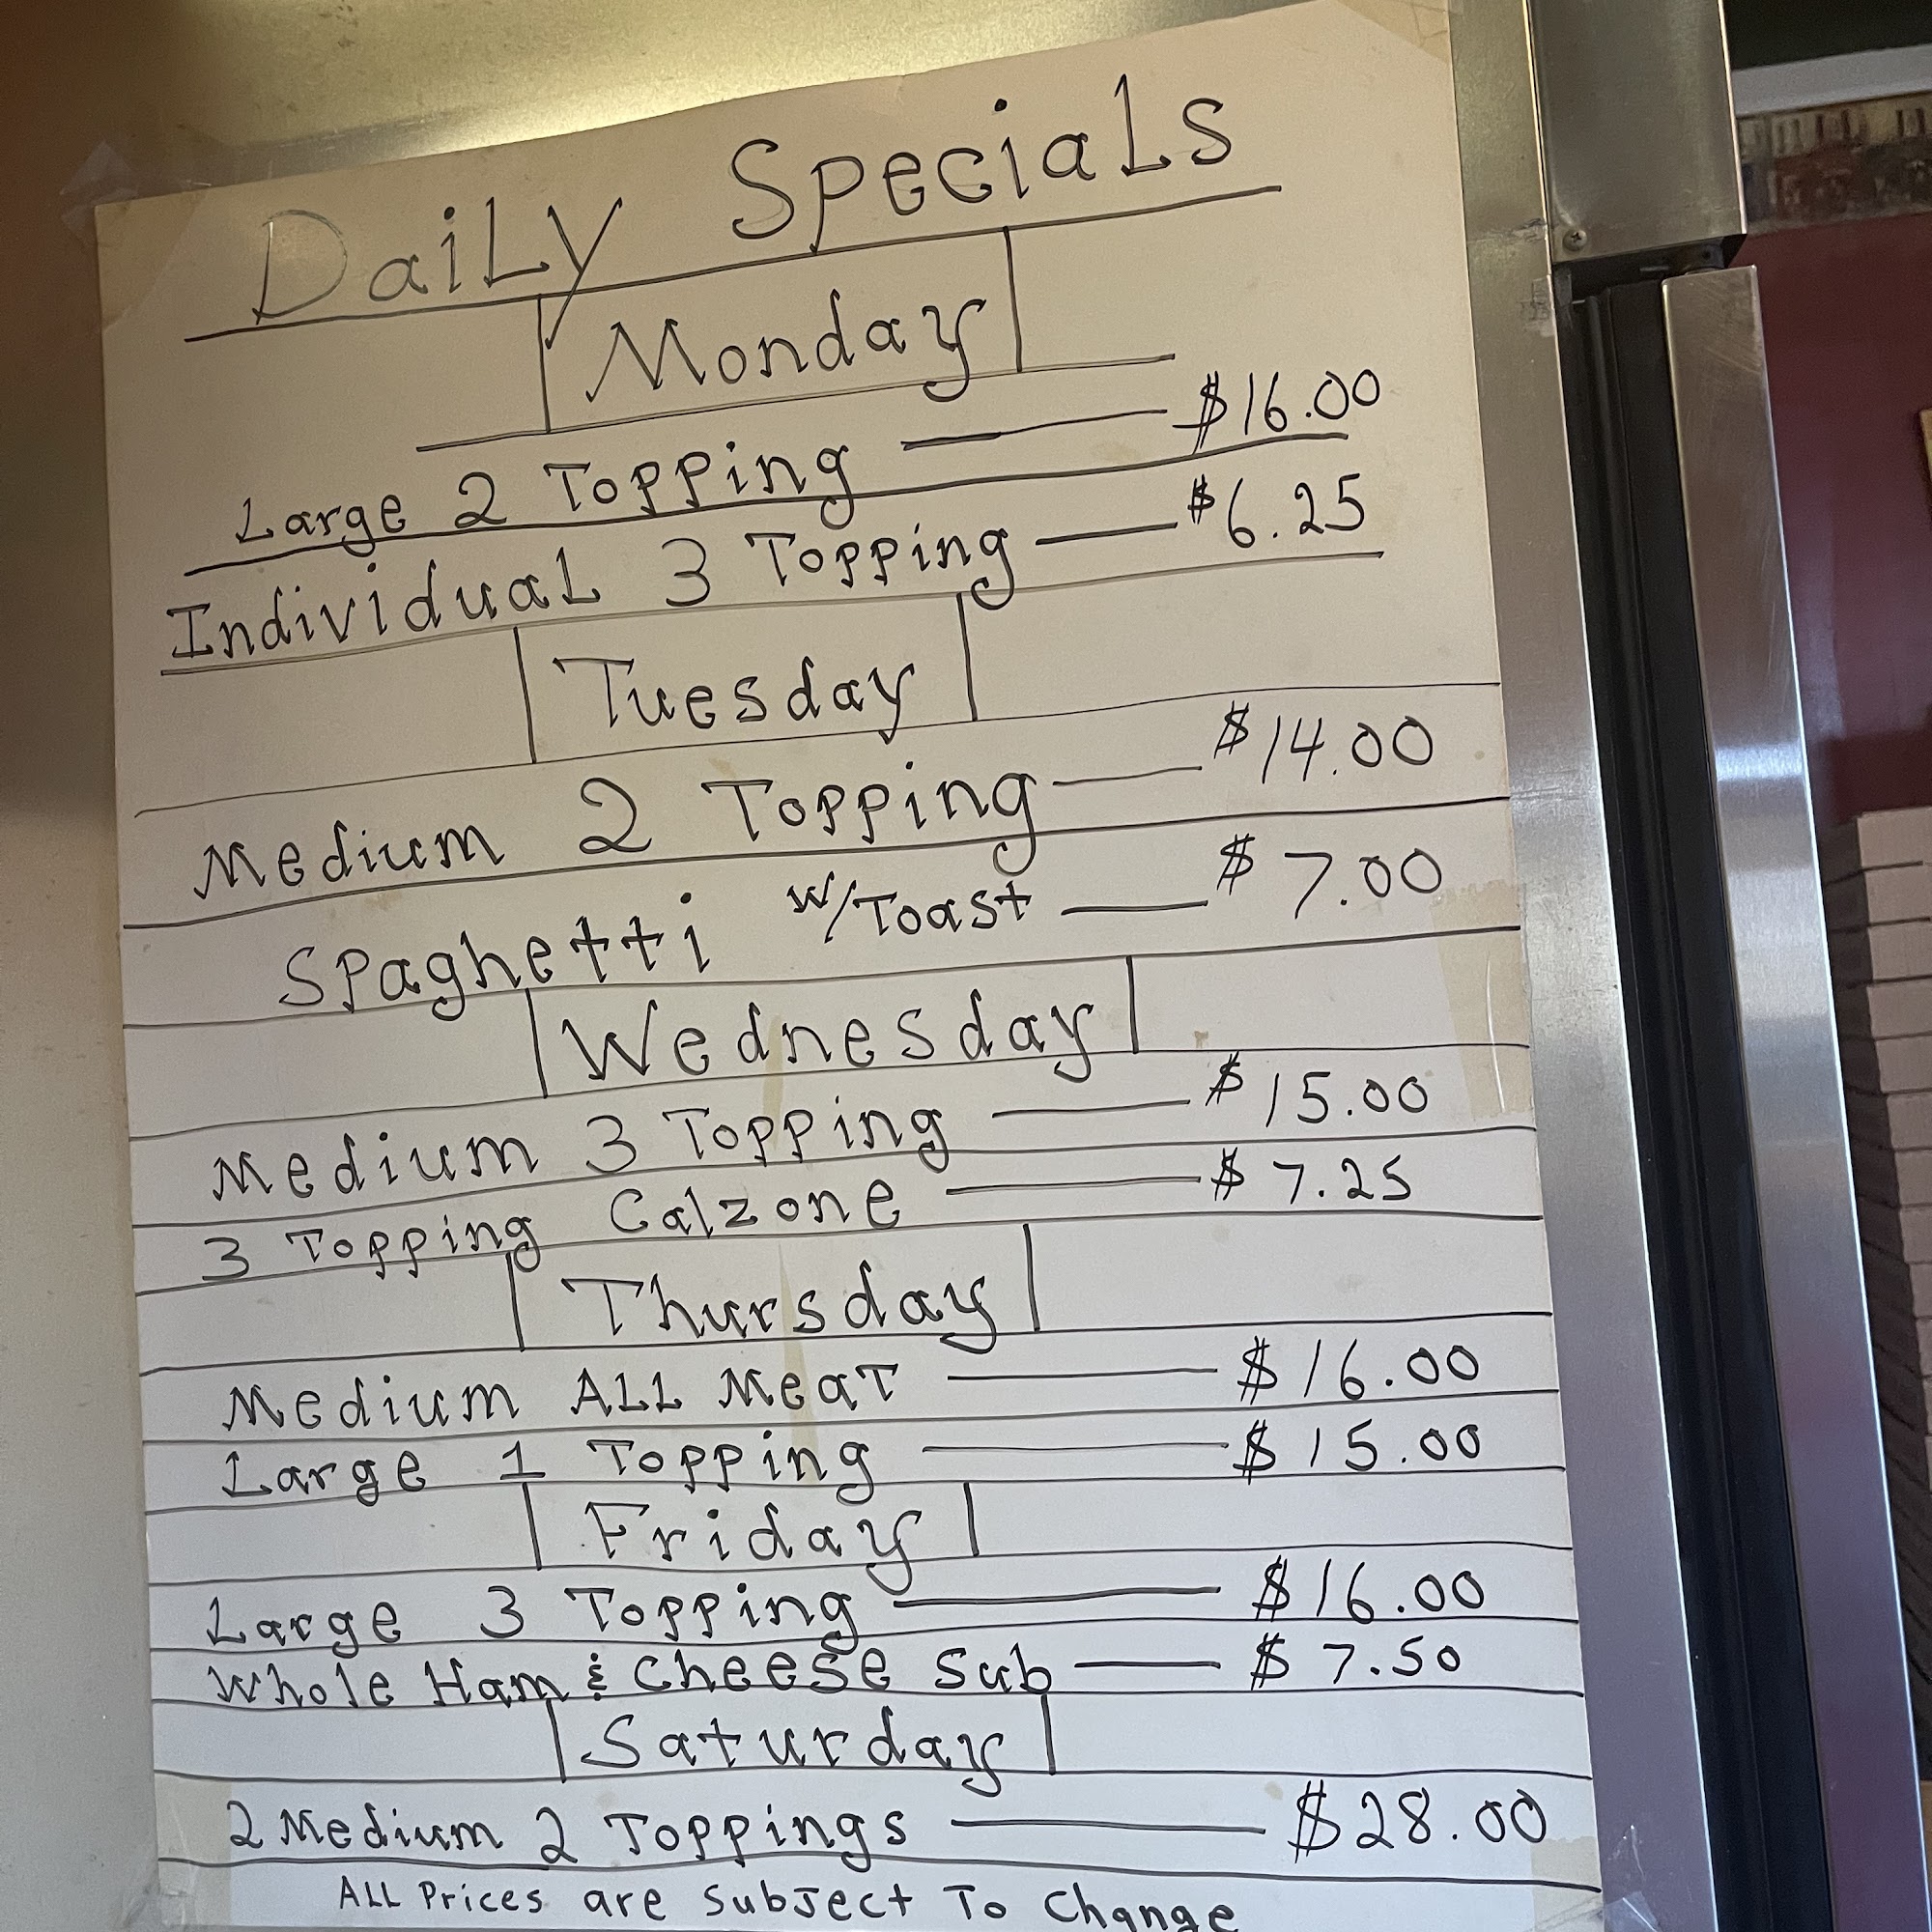 Daily Specials
Monday
Large 2 Topping $16.00
Individual 3 Topping $6.25
Tuesday
Medium 2 Topping $14.00
Spaghetti w/Toast $7.00
Wednesday
Medium 3 Topping $15.00
3 Topping Calzone $7.25
Thursday
Medium ALL Meat $16.00
Large 1 Topping $15.00
Friday
Large 3 Topping $16.00
Whole Ham & Cheese Sub $7.50
Saturday
2 Medium 2 Toppings $28.00
ALL Prices are Subject To Change